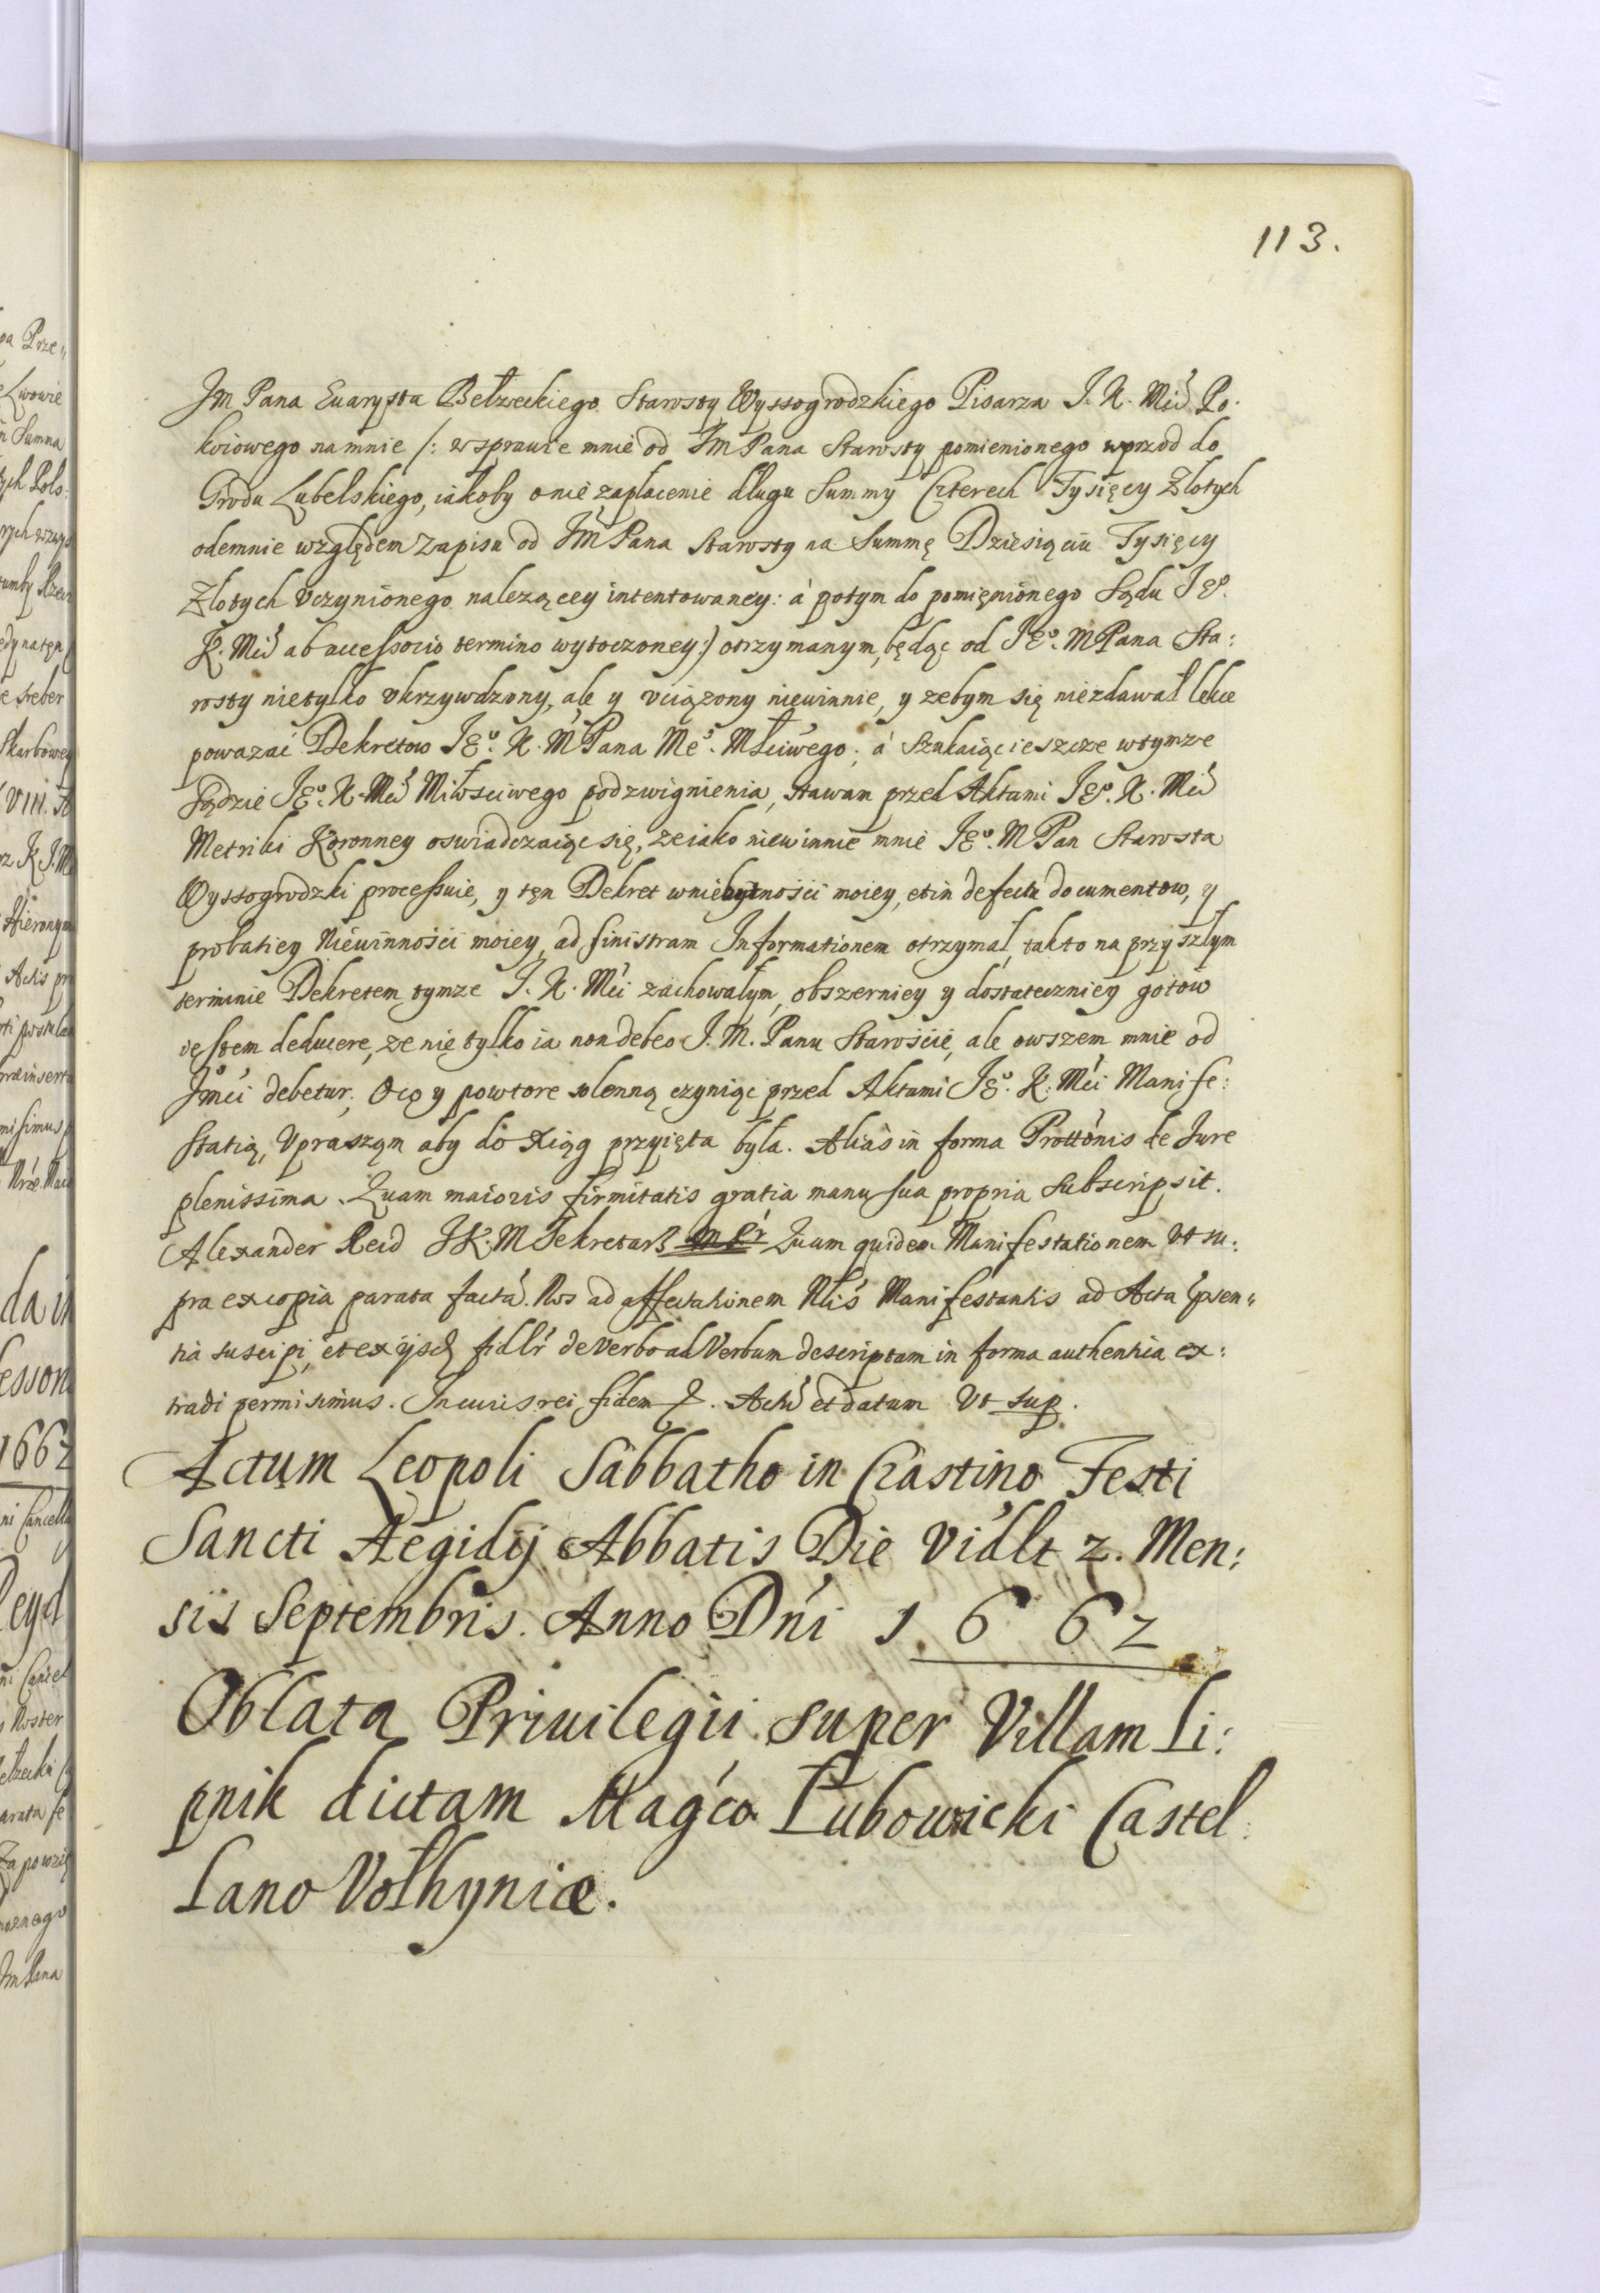 113.
JM Pana Euarysta Bełzeckiego Starosty Wyssogrodzkiego Pisarza J. K. Mći Po-
koiowego na mnie /: w sprawie mnie od JM Pana Starosty pomienionego wprzod do
Grodu Lubelskiego, iakoby o nie zapłacenie długu Summy Czterech Tysięcy Złotych
odemnie względem zapisu od JM Pana Starosty na Summę Dziesiąciu Tysięcy
Złotych Vczynionego należącey intentowaney: á potym do pomięnionego Sądu JEº.
K. Mći ab accessorio termino wytoczoney:/ otrzymanym, będąc od JEº. M Pana Sta:
rosty nietylko vkrzywdzony, ale y vciązony niewinnie, y zebym się niezdawał lekce
powazać Dekretow JEº. K. M Pana Meº. Mściwego; á szukaiąc ieszcze wtymze
Sądzie JEº. K. Mći Miłosciwego podzwignienia, stawam przed Aktami JEº. K. Mći
Metriki Koronney oswiadczaiąc się, ze iako niewinnie mnie JEº. M Pan Starosta
Wyssogrodzki processuie, y tęn Dekret wniebytności moiey, et in defectu documentow, y
probatiey Niewinności moiey, ad sinistram Informationem otrzymał, tak to na przyszłym
terminie Dekretem tymze J. K. Mći zachowałym, obszerniey y dostateczniey gotow
iestem deducere, ze nie tylko ia non debeo J. M. Panu Starościé, ale owszem mnie od
Jmći debetur. Oco y powtore solenną czyniąc przed Aktami JEº. K. Mći Manife:
statią, Vpraszam aby do Xiąg przyięta była. Alias in forma Prottónis de Jure
plenissima. Quam maioris firmitatis gratia manu sua propria subscripsit.
Alexander Reid JK: M Sekretarz mpr Quam quidem Manifestationem Vt su:
pra ex copia parata factá. Nos ad affectationem Nlis Manifestantis ad Acta psen„
tia suscipi, et ex ijsd fidlr de Verbo ad Verbum descriptam in forma authentica ex:
tradi permisimus. In cuius rei fidem &. Actú et datum Vt sup.
Actum Leopoli Sabbatho in Crastino Festi
Sancti Aegidij Abbatis Die Vidlt 2. Men:
sis Septembris. Anno Dńi 1662
Oblata Priuilegii super Villam Li:
pnik dictam Mag͠co Łubowicki Castel:
lano Vołhyniæ.